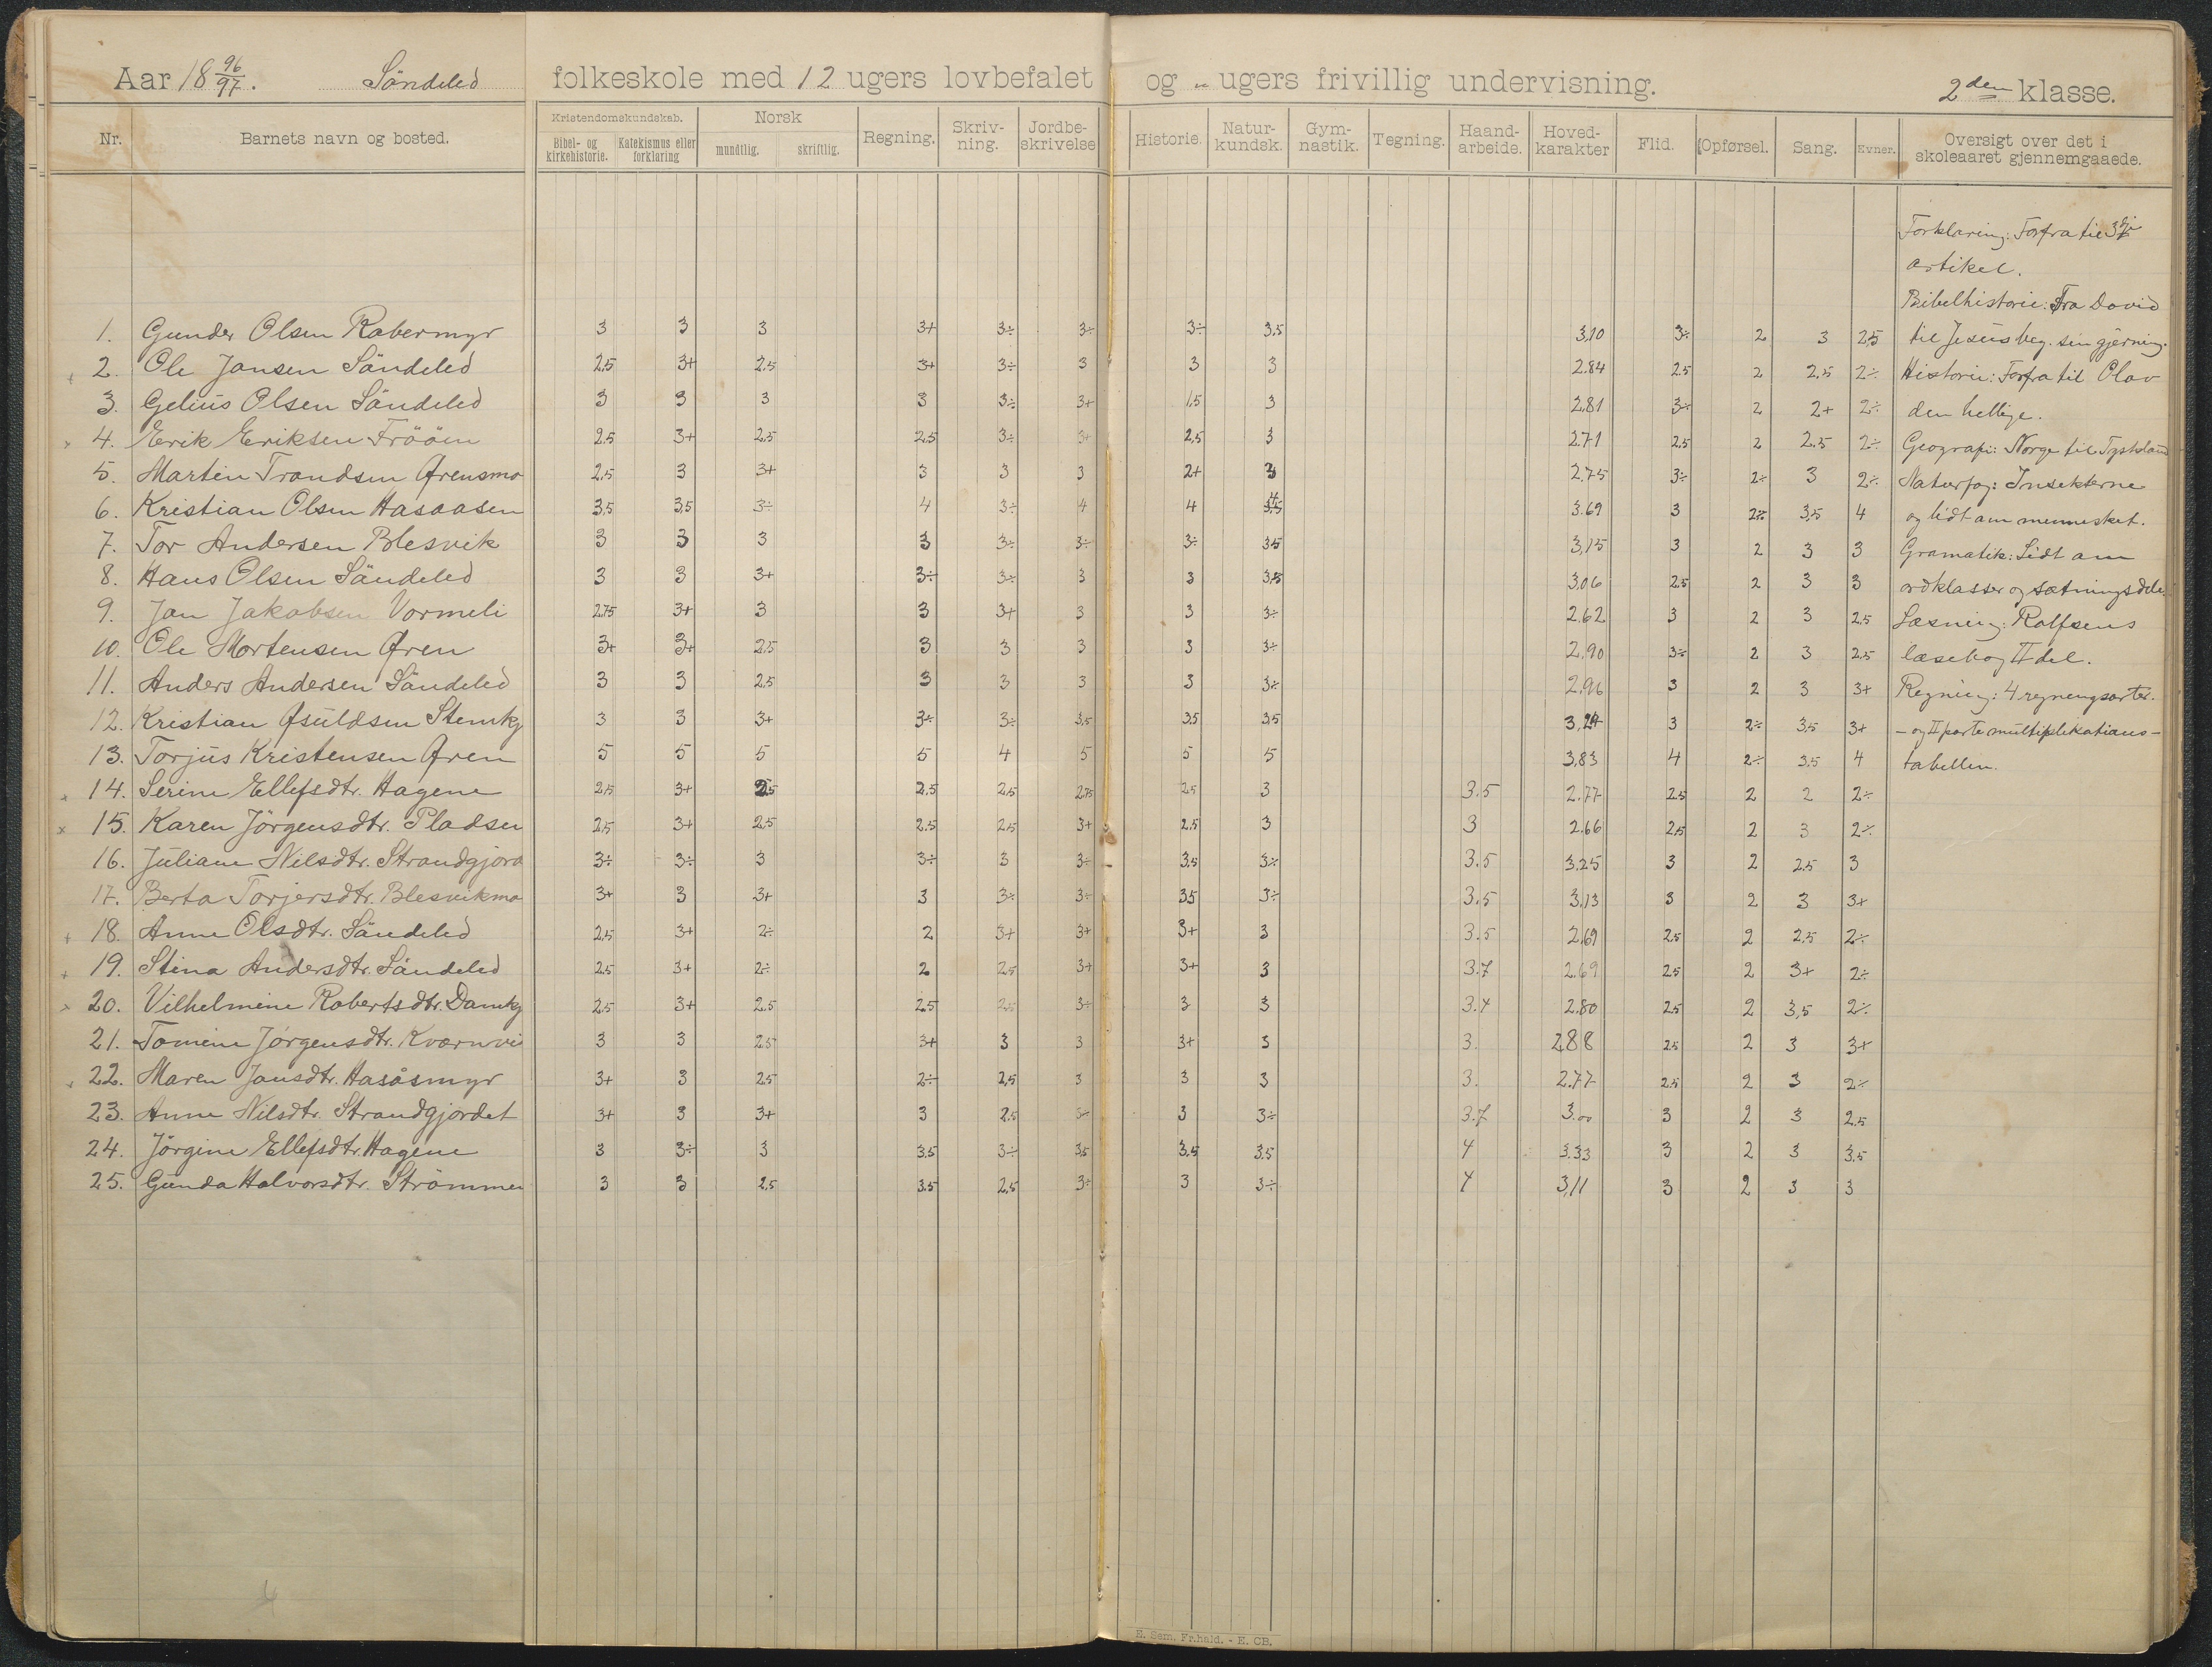 Aar 18 96/97. Söndeled folkeskole med 12 ugers lovbefalet og „ ugers frivillig undervisning. 2den klasse.
Nr. Barnets navn og bosted. Kristendomskundskab. Bibel- og kirkehistorie. Katekismus eller forklaring Norsk mundtlig. skriftlig. Regning. Skriv-ning. Jordbe-skrivelse Historie. Natur-kundsk. Gym-nastik. Tegning. Haand-arbeide. Hoved-karakter Flid. Opførsel. Sang. Evner. Oversigt over det i skoleaaret gjennemgaaede.
Forklaring: Forfra til 3die
artikel.
Bibelhistorie: Fra David
1. Gunder Olsen Rabermyr 3 3 3 3+ 3÷ 3÷ 3÷ 3,5 3,10 3÷ 2 3 2,5 til Jesus beg. sin gjerning.
2. Ole Jansen Söndeled 2,5 3+ 2,5 3+ 3÷ 3 3 3 2.84 2.5 2 2,5 2÷ Historie: Forfra til Olav
3. Gelius Olsen Söndeled 3 3 3 3 3÷ 3+ 1,5 3 2,81 3÷ 2 2+ 2÷ den hellige.
x 4. Erik Eriksen Frööen 2.5 3+ 2,5 2,5 3÷ 3+ 2,5 3 2.71 2,5 2 2.5 2÷ Geografi: Norge til Tyskland
5. Martin Trondsen Ørensmo 2,5 3 3+ 3 3 3 2+ 3 2.75 3÷ 2÷ 3 2÷ Naturfag: Insekterne
6. Kristian Olsen Hasaasen 3,5 3,5 3÷ 4 3÷ 4 4 4 3.69 3 2÷ 3,5 4 og lidt om mennesket.
7. Tor Andersen Blesvik 3 3 3 3 3÷ 3÷ 3÷ 3,5 3,15 3 2 3 3 Gramatik: Lidt om
8. Hans Olsen Söndeled 3 3 3+ 3÷ 3÷ 3 3 3,5 3,06 2.5 2 3 3 ordklasser og sætningsdele.
9. Jan Jakobsen Vormeli 2.75 3+ 3 3 3+ 3 3 3÷ 2.62 3 2 3 2,5 Læsning: Rolfsens
10. Ole Mortensen Øren 3+ 3+ 2,5 3 3 3 3 3÷ 2.90 3÷ 2 3 2.5 læsebog II del.
11. Anders Andersen Söndeled 3 3 2,5 3 3 3 3 3÷ 2,96 3 2 3 3+ Regning: 4 regningsarter.
12. Kristian Øsuldsen Stemkj 3 3 3+ 3÷ 3÷ 3,5 3,5 3,5 3,24 3 2÷ 3,5 3+ - og II parte multiplikations-
13. Torjus Kristensen Øren 5 5 5 5 4 5 5 5 3,83 4 2÷ 3,5 4 tabellen.
x 14. Serine Ellefsdtr. Hagene 2,5 3+ 2,5 2,5 2,5 2,75 2,5 3 3.5 2.77 2.5 2 2 2÷
x 15. Karen Jörgensdtr. Pladsen 2,5 3+ 2,5 2.5 2,5 3+ 2.5 3 3 2.66 2,5 2 3 2÷
16. Juliane Nilsdtr. Strandgjord 3÷ 3÷ 3 3÷ 3 3÷ 3.5 3÷ 3.5 3.25 3 2 2.5 3
17. Berta Torjersdtr. Blesvikmo 3+ 3 3+ 3 3÷ 3÷ 3,5 3÷ 3.5 3,13 3 2 3 3+
+ 18. Anne Olsdtr. Söndeled 2,5 3+ 2÷ 2 3+ 3+ 3+ 3 3.5 2,69 2,5 2 2,5 2÷
+ 19. Stina Andersdtr. Söndeled 2.5 3+ 2÷ 2 2,5 3+ 3+ 3 3.7 2.69 2.5 2 3+ 2÷
x 20. Vilhelmine Robertsdtr. Damkj 2.5 3+ 2.5 2.5 2.5 3÷ 3 3 3.4 2.80 2.5 2 3,5 2÷
21. Tomine Jörgensdtr. Kvernvi 3 3 2,5 3+ 3 3 3+ 3 3. 2.88 2.5 2 3 3+
x 22. Maren Jansdtr. Hasåsmyr 3+ 3 2.5 2÷ 2,5 3 3 3 3. 2.77 2.5 2 3 2÷
23. Anne Nilsdtr. Strandgjordet 3+ 3 3+ 3 2.5 3÷ 3 3÷ 3.7 3.00 3 2 3 2.5
24. Jörgine Ellefsdtr. Hagene 3 3÷ 3 3.5 3÷ 3,5 3,5 3.5 4 3.33 3 2 3 3.5
25. Gunda Halvorsdtr. Strömmen 3 3 2,5 3.5 2,5 3÷ 3 3÷ 4 3,11 3 2 3 3
E. Sem. Fr.hald. - E. CB.